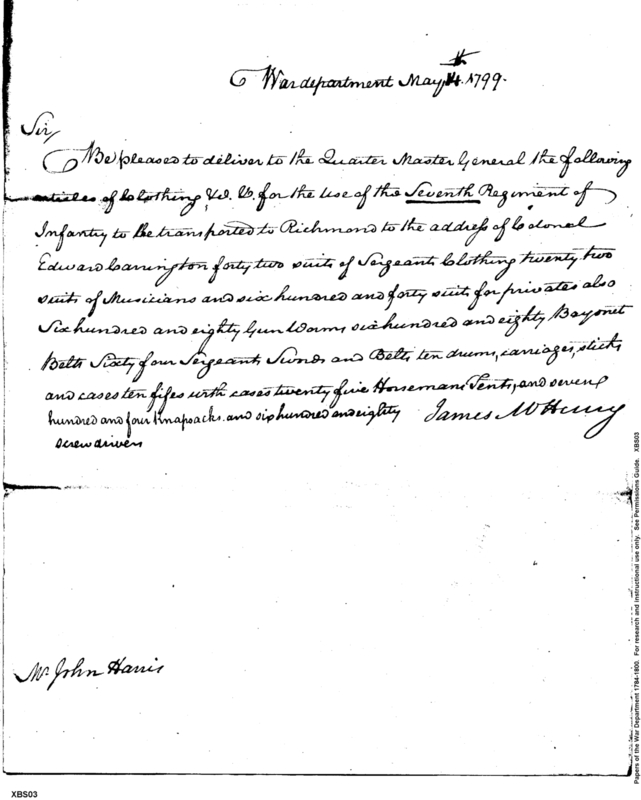 War department May 14th 1799.
Sir,
Be pleased to deliver to the Quarter Master General the following
articles of Clothing &c. &c. for the use of the Seventh Regiment of
Infantry to be transported to Richmond to the address of Colonel
Edward Carrington forty two suits of Sergeants Clothing twenty two
suits of Musicians and six hundred and forty suits for privates also
Six hundred and eighty Gun Worms six hundred and eighty Bayonet
Belts Sixty four Sergeants Swords and Belts ten drums, carriages, sticks
and cases ten fifes with cases twenty five Horsemans Tents, and seven
hundred and four knapsacks. and six hundred and eighty
screw drivers
James McHenry
Mr. John Harris
XBS03
Papers of the War Department 1784-1800. For research and instructional use only. See Permissions Guide. XBS03